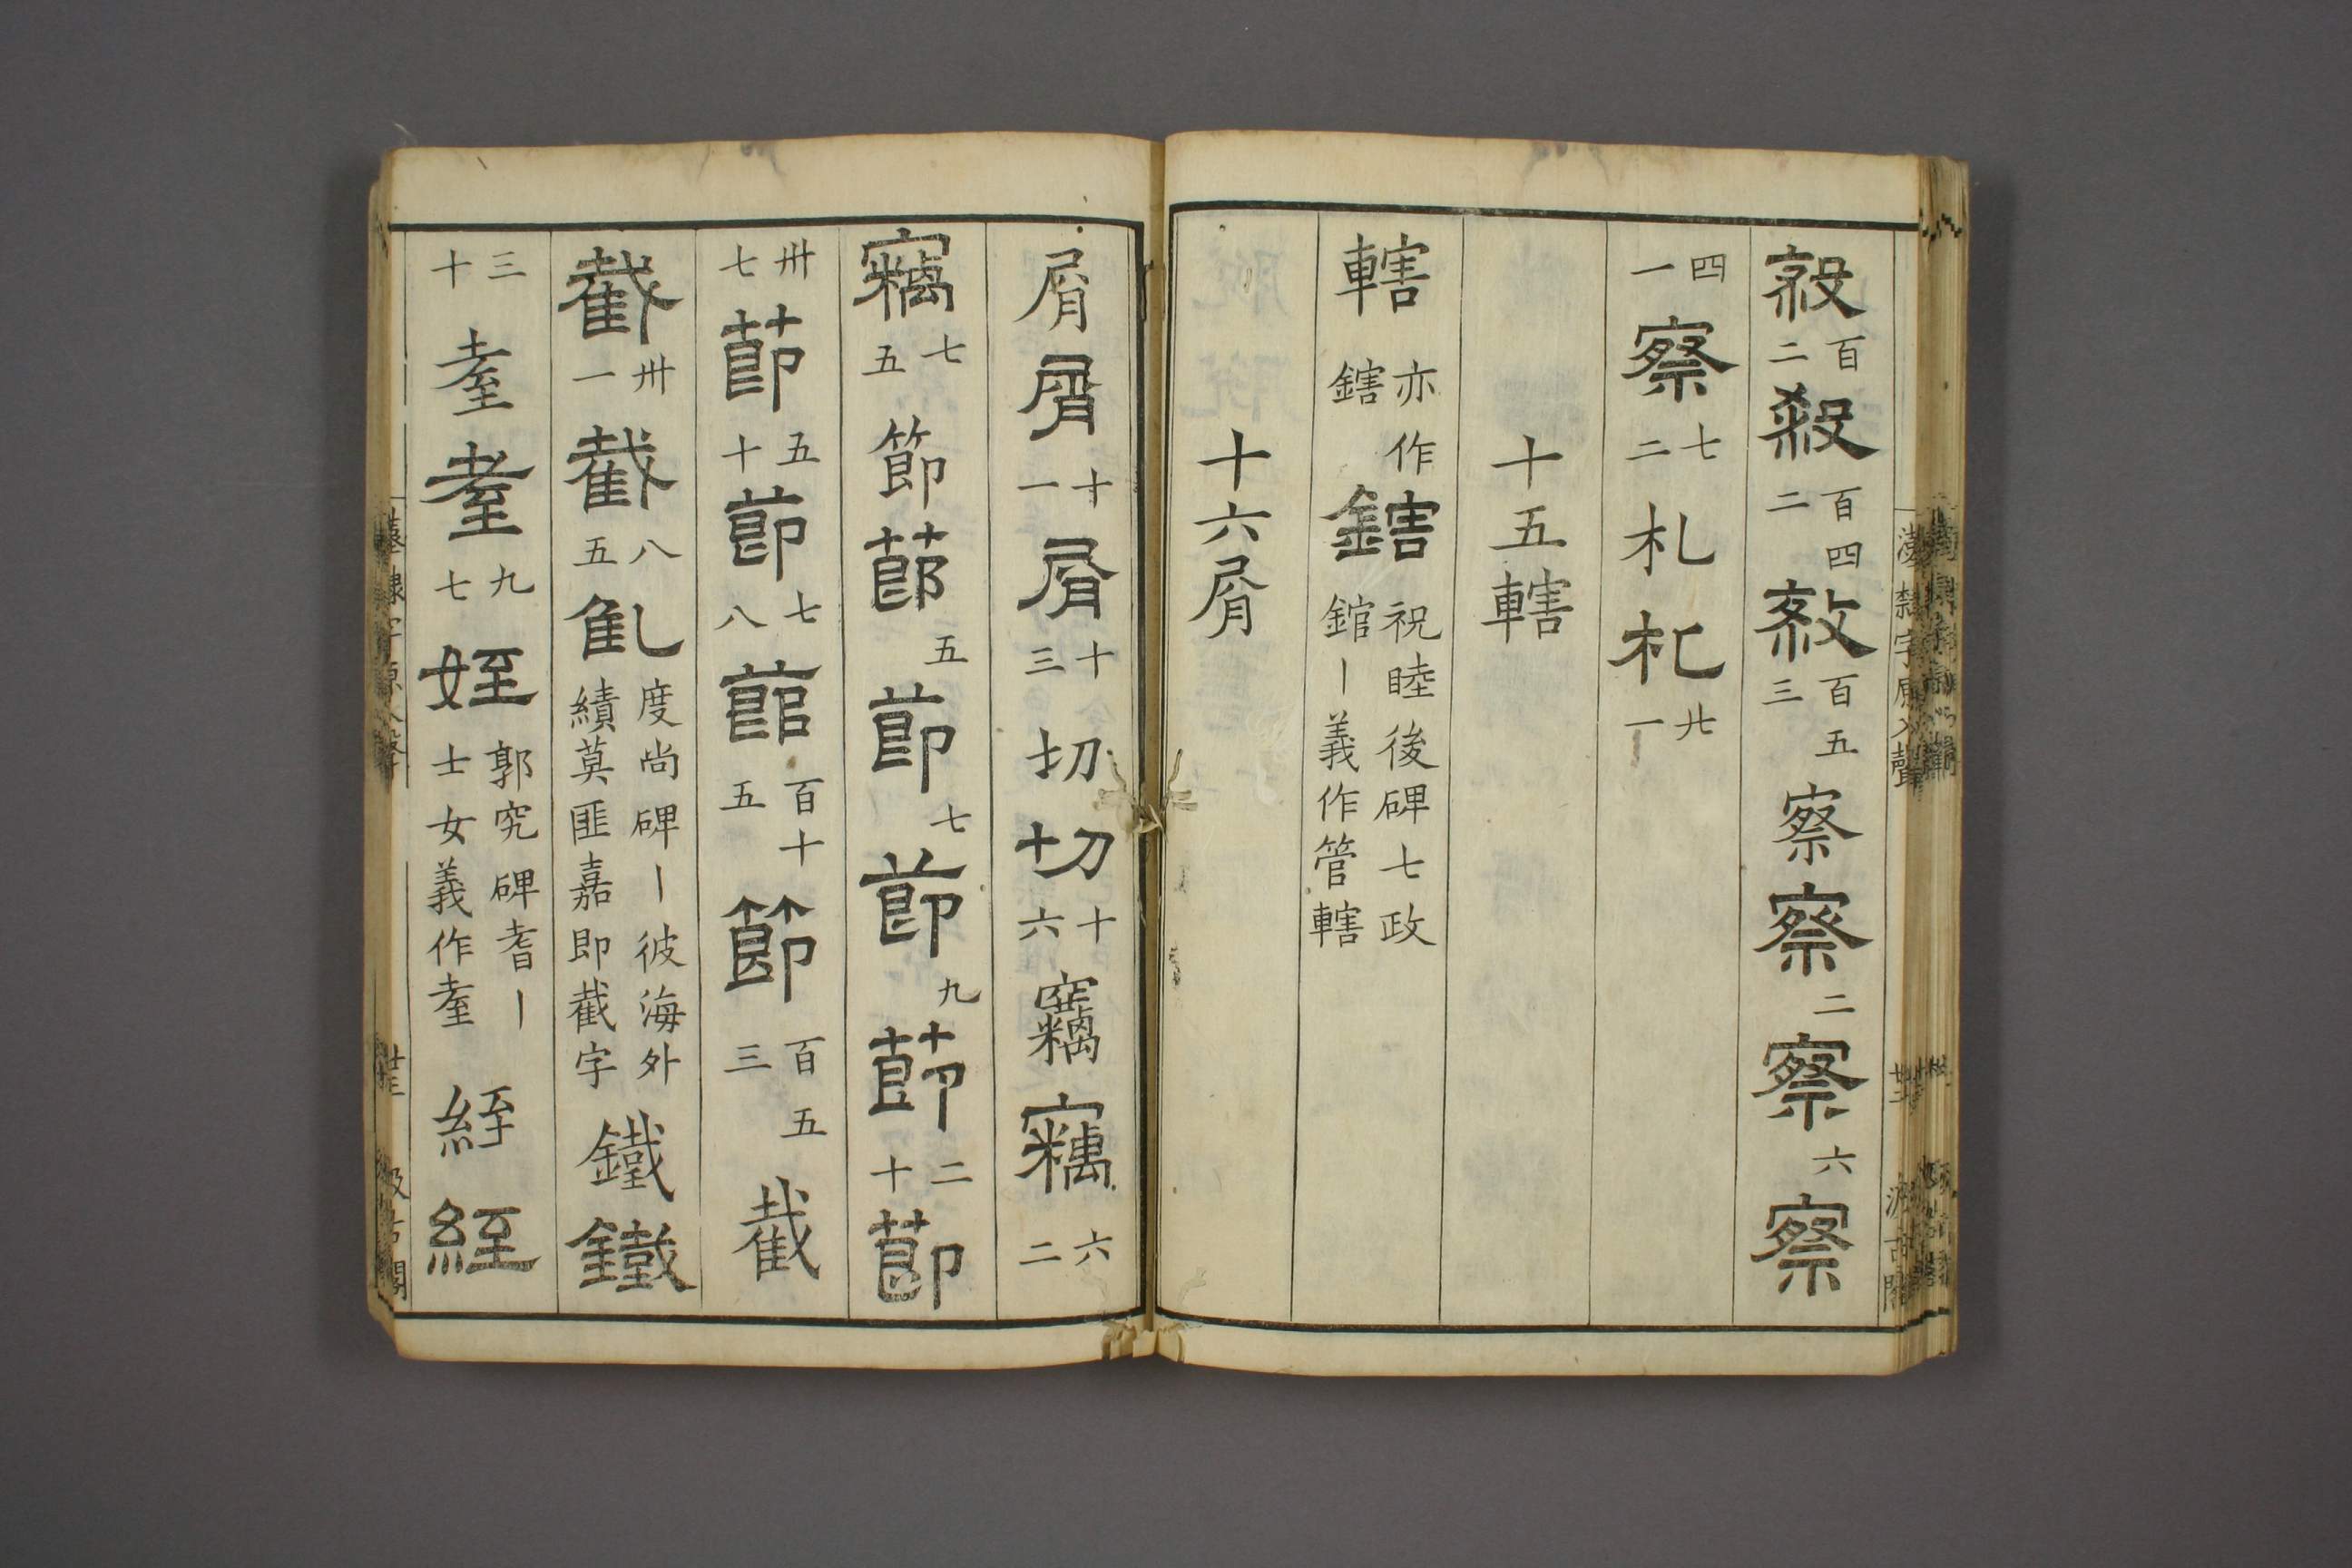 殺百二殺百四二殺百五三察察二察六察
四一察七二札札廿一
十五轄
轄亦作鎋鎋祝睦後碑七政錧〡義作管轄
十六屑
屑屑十一屑十三切切十六竊竊六二
竊七五節節五節七節九節二十節
卅七節五十節七八節百十五節百五三截
截卅一截八五截度尚碑〡彼海外績莫匪嘉即截字鐵鐵
三十耋耋九七姪郭究碑耆〡士女義作耋絰絰
漢隸字原入聲
汲古閣